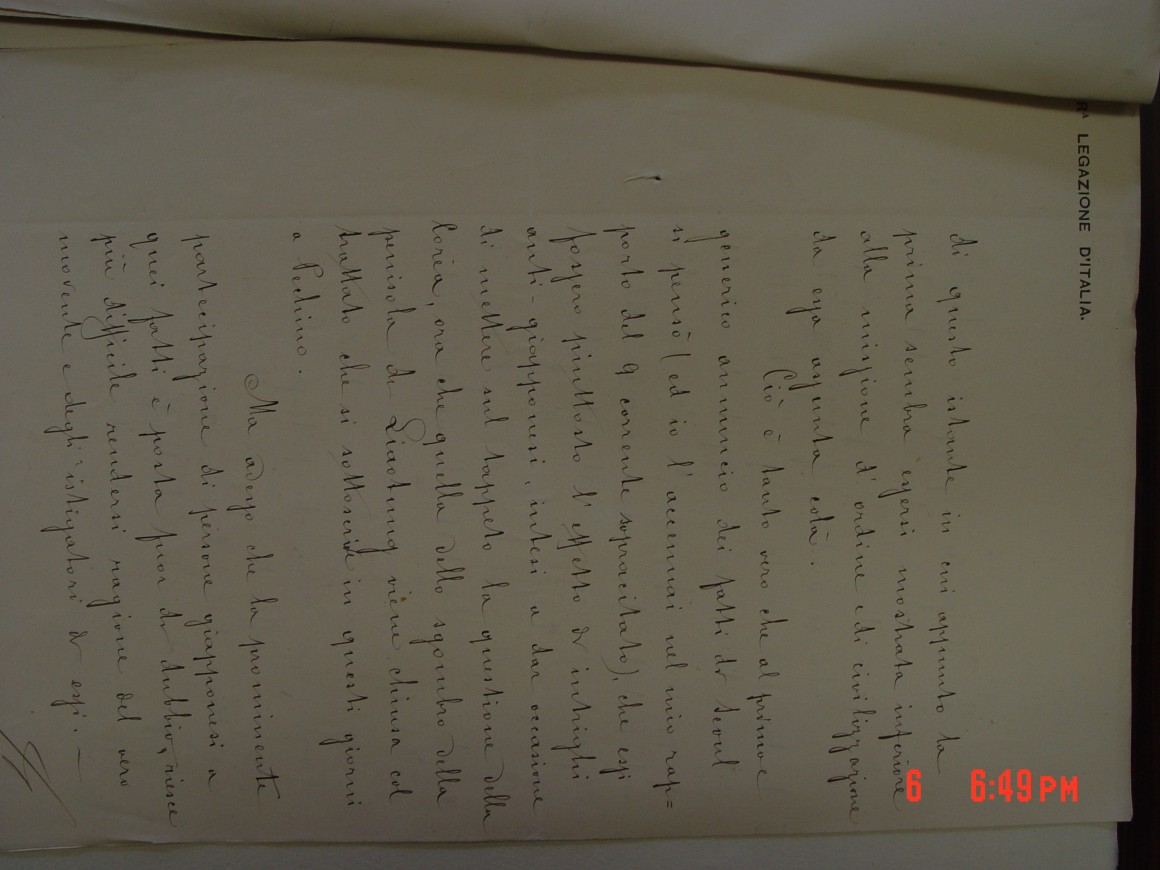 Rᴬ LEGAZIONE D'ITALIA.
di questo istante in cui appunto la
prima sembra essersi mostrata inferiore
alla missione d'ordine e di civilizzazione
da essa assunta colà.
Ciò è tanto vero che al primo e
generico annuncio dei fatti di Seoul
si pensò (ed io l'accennai nel mio rap=
porto del 9 corrente sopracitato), che essi
fossero piuttosto l'effetto di intrighi
anti-giapponesi, intesi a dar occasione
di mettere sul tappeto la questione della
Corea, ora che quella dello sgombro della
penisola di Liaotung viene chiusa col
trattato che si sottoscrive in questi giorni
a Pechino.
Ma adesso che la prominente
partecipazione di persone giapponesi a
quei fatti è posta fuor di dubbio, riesce
più difficile rendersi ragione del vero
movente e degli istigatori di essi. —
6 6:49 PM